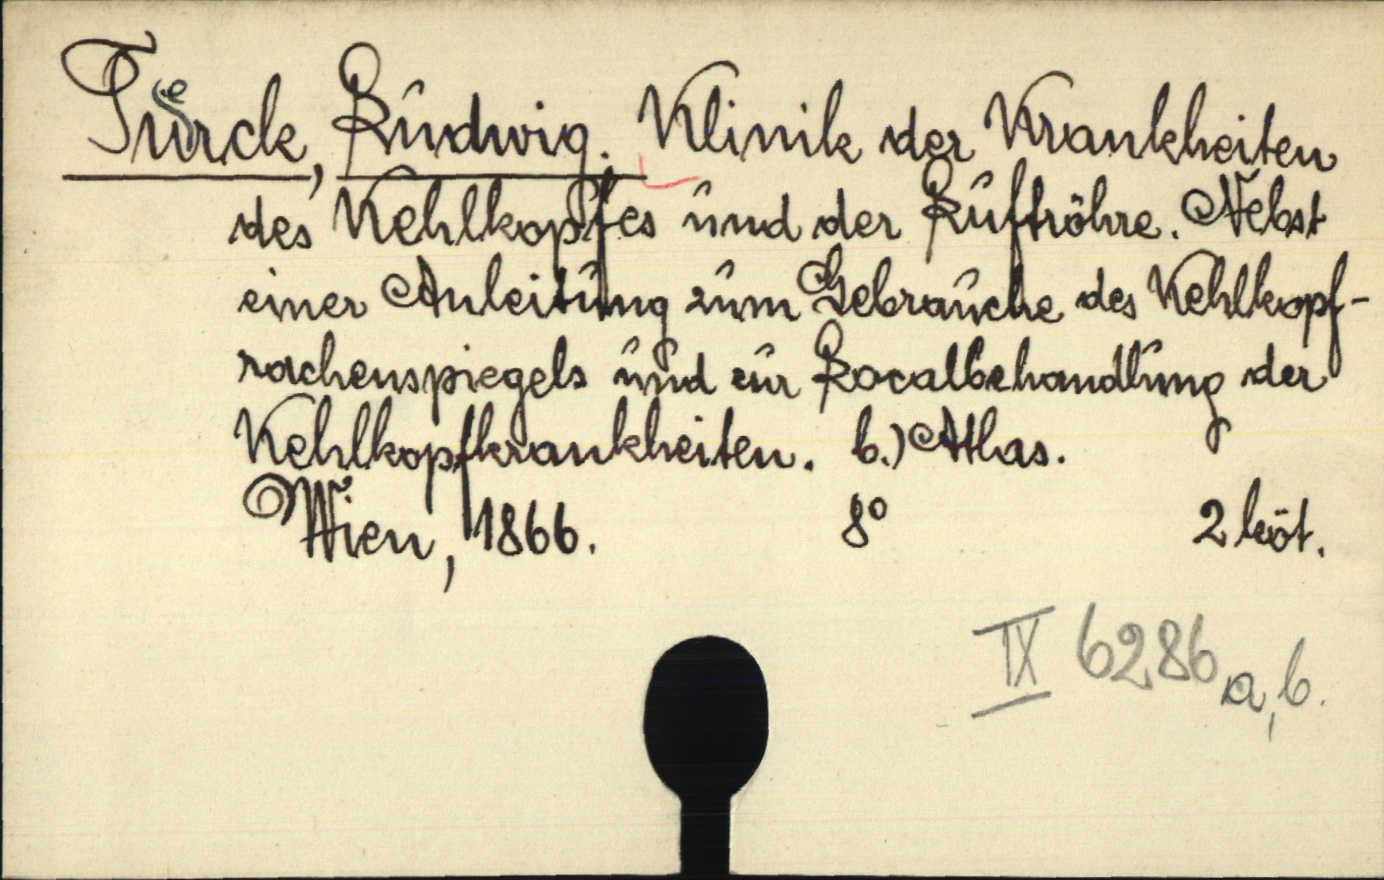 Türck, Ludwig. Klinik der Krankheiten
des Kehlkopfes und der Luftröhre. Nebst
einer Anleitung zum Gebrauche des Kehlkopf-
rachenspiegels und zur Localbehandlung der
Kehlkopfkrankheiten. b.) Atlas.
Wien, 1866. 8° 2 köt.
IX 6286 a, b.